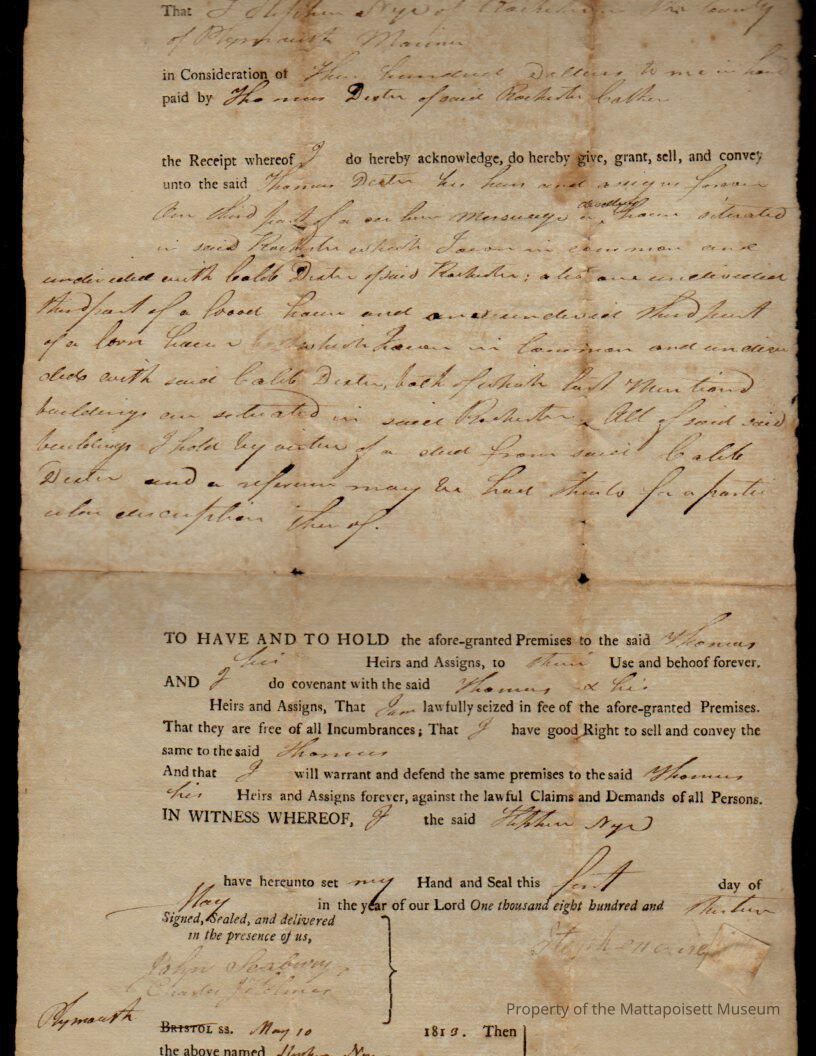 That I Stephen Nye of Rochester in the County
of Plymouth Mariner
in Consideration of Three hundred Dollars to me in hand
paid by Thomas Dexter of said Rochester
the Receipt whereof I do hereby acknowledge, do hereby give, grant, sell, and convey
unto the said Thomas Dexter his heirs and assigns forever
One third part of a certain Messuage or dwelling house situated
in said Rochester which I own in common and
undivided with Caleb Dexter of said Rochester; also one undivided
third part of a wood house and one undivided third part
of a Corn house which I own in Common and undivi
ded with said Caleb Dexter, both of which last Mentiond
buildings are situated in said Rochester. All of said
buildings I hold by virtue of a deed from said Caleb
Dexter and a reference may be had thereto for a partic
ular discription thereof.
TO HAVE AND TO HOLD the afore-granted Premises to the said Thomas
his Heirs and Assigns, to their Use and behoof forever.
AND I do covenant with the said Thomas & his
Heirs and Assigns, That I am lawfully seized in fee of the afore-granted Premises.
That they are free of all Incumbrances; That I have good Right to sell and convey the
same to the said Thomas
And that I will warrant and defend the same premises to the said Thomas
his Heirs and Assigns forever, against the lawful Claims and Demands of all Persons.
IN WITNESS WHEREOF, I the said Stephen Nye
have hereunto set my Hand and Seal this first day of
May in the year of our Lord One thousand eight hundred and thirteen
Signed, Sealed, and delivered
in the presence of us,
Stephen Nye
John
Charles J. Holmes
Plymouth
BRISTOL ss. May 10 1813. Then
the above named Stephen Nye
Property of the Mattapoisett Museum